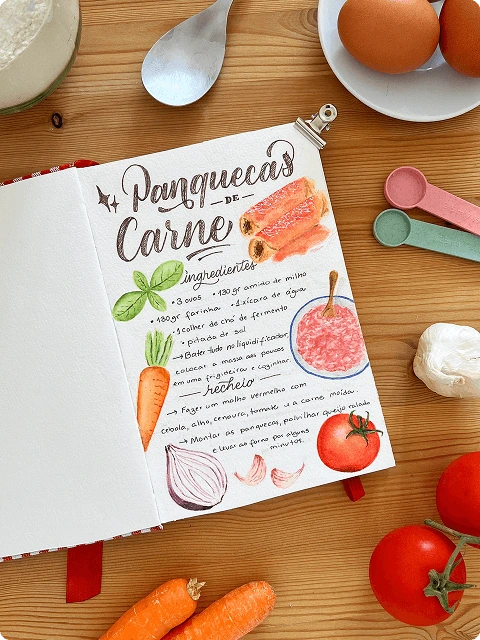 Panquecas
DE
Carne
ingredientes
• 3 ovos • 130gr amido de milho
• 130gr farinha • 1 xícara de água
• 1 colher de chá de fermento
• pitada de sal
→ Bater tudo no liquidificador,
colocar a massa aos poucos
em uma frigideira e cozinhar.
recheio
→ Fazer um molho vermelho com
cebola, alho, cenoura, tomate e a carne moída.
→ Montar as panquecas, polvilhar queijo ralado
e levar ao forno por alguns
minutos.